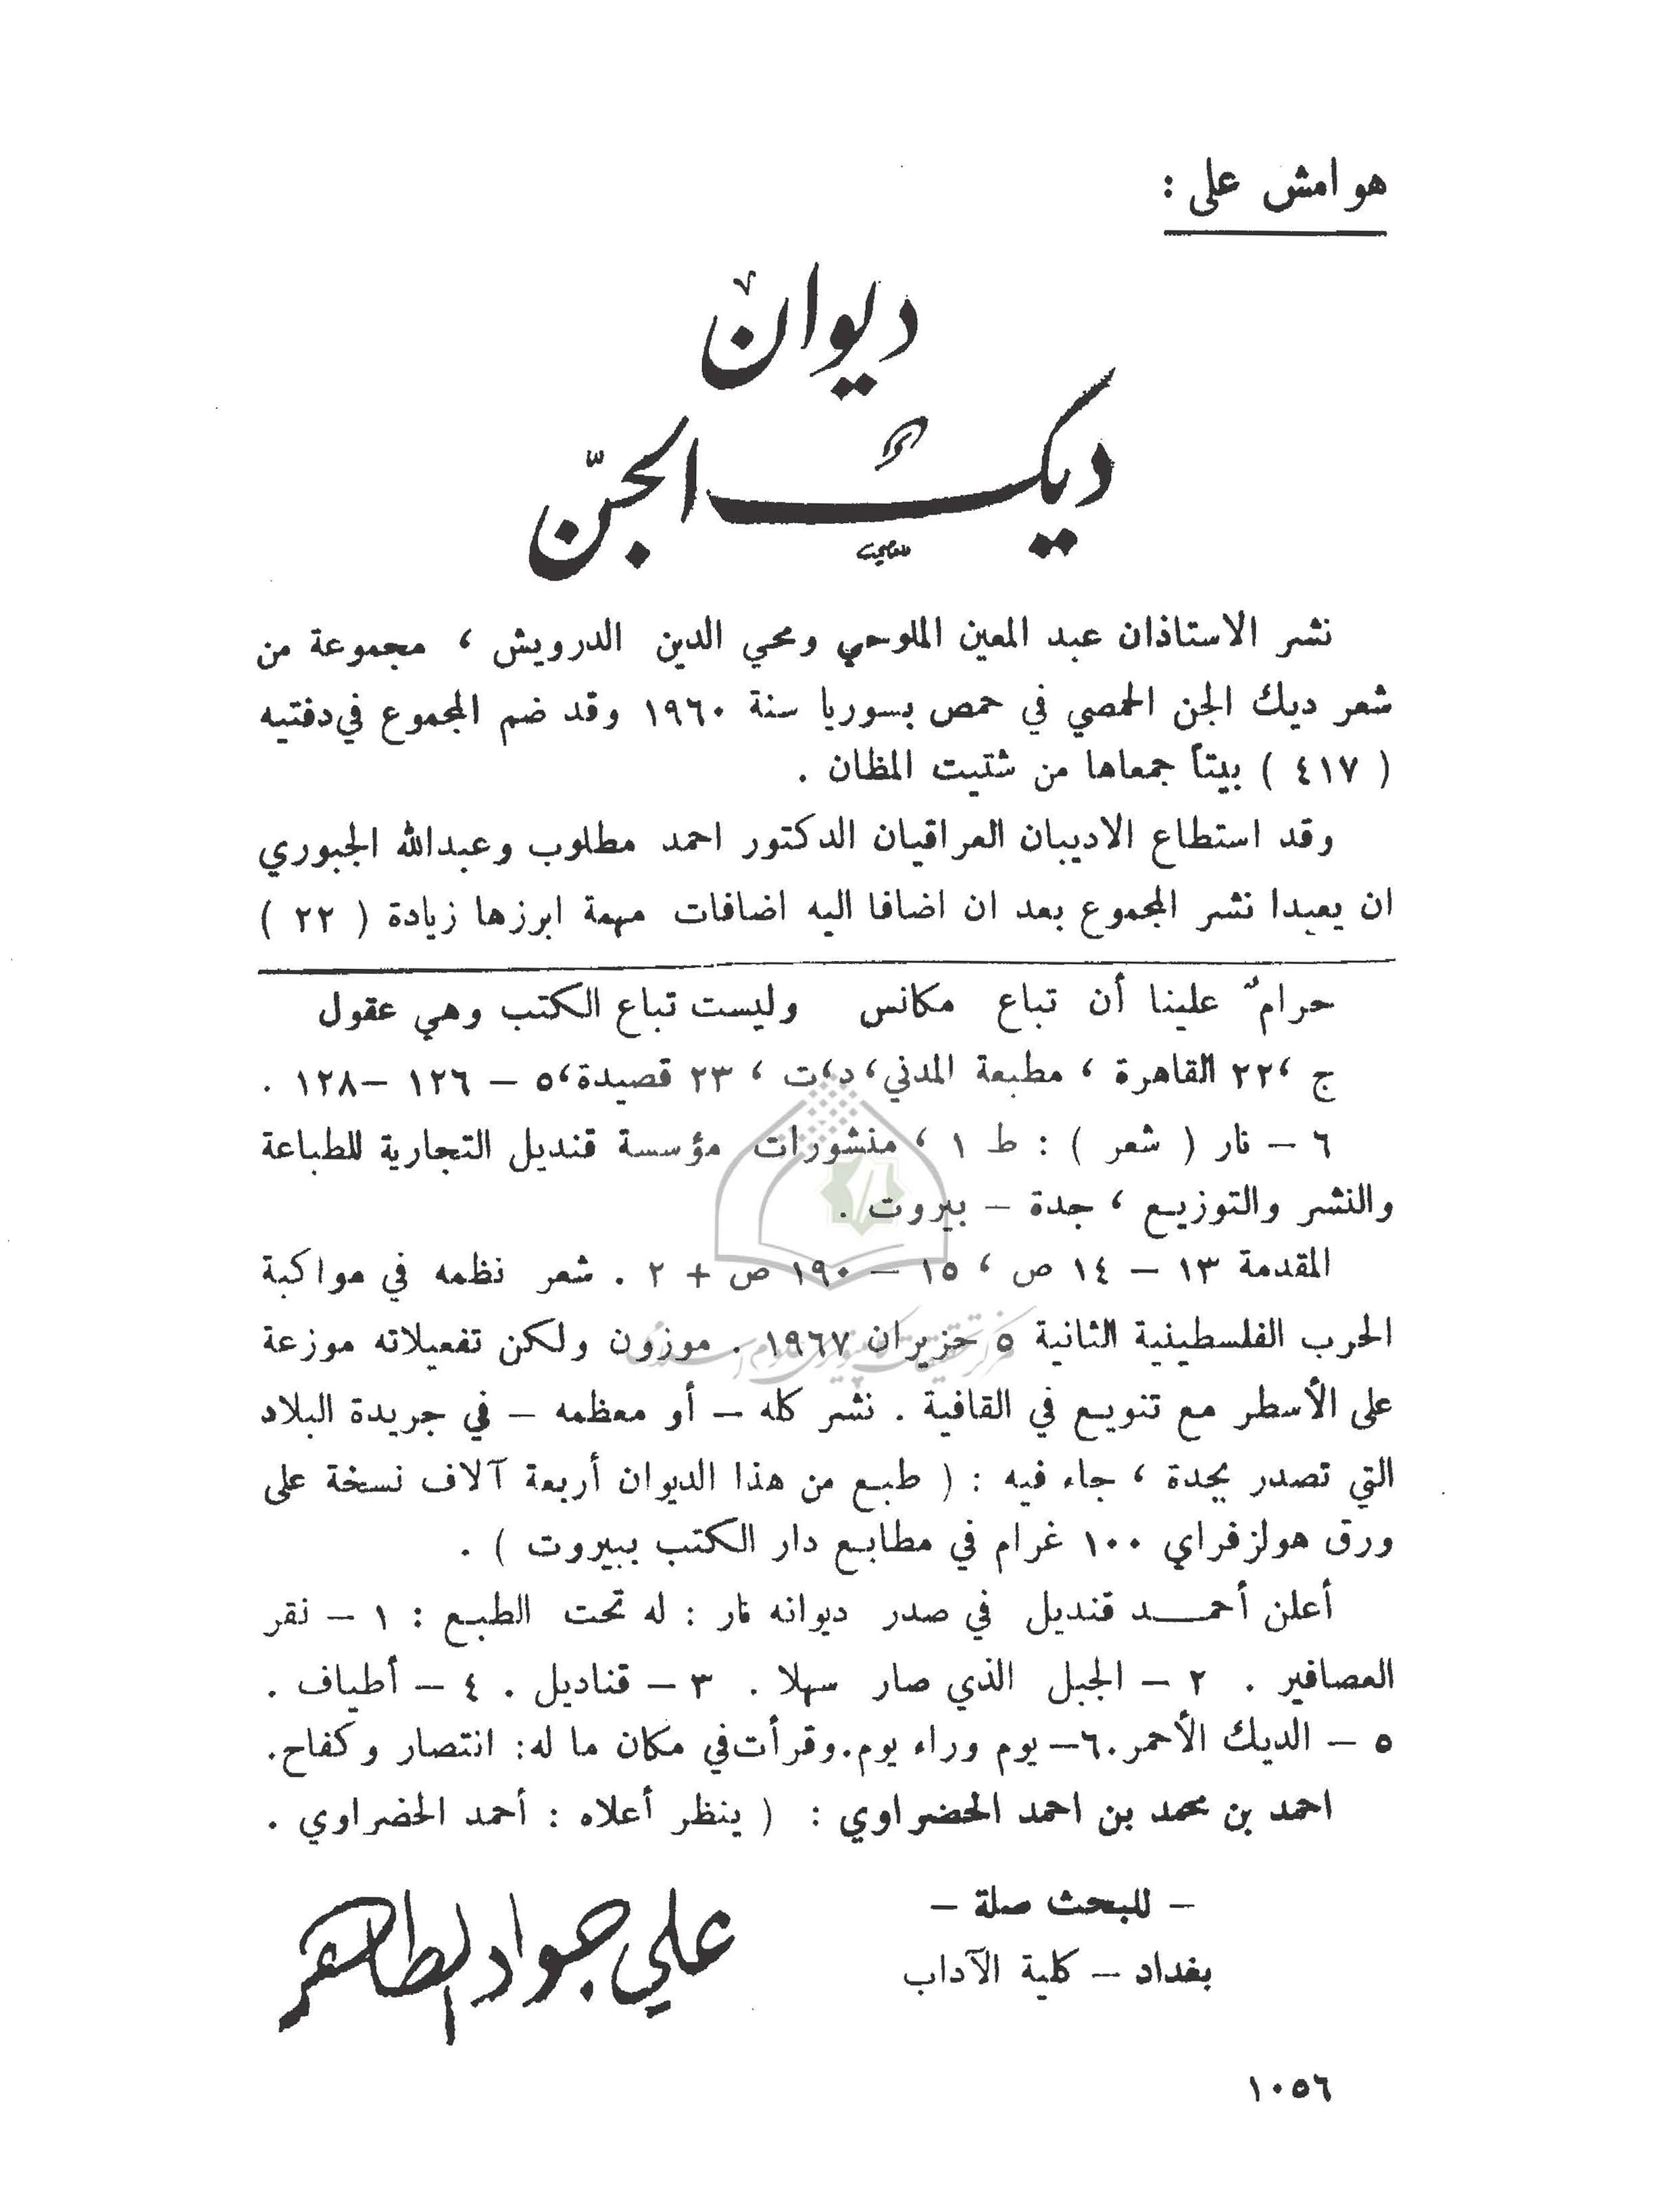 هوامش على :
ديوان
ديك الجنّ
نشر الاستاذان عبد المعين الملوحي ومحي الدين الدرويش ، مجموعة من
شعر ديك الجن الحمصي في حمص بسوريا سنة ١٩٦٠ وقد ضم المجموع في دفتيه
( ٤١٧ ) بيتاً جمعاها من شتيت المظان .
وقد استطاع الاديبان العراقيان الدكتور احمد مطلوب وعبدالله الجبوري
ان يعيدا نشر المجموع بعد ان اضافا اليه اضافات مهمة ابرزها زيادة ( ٢٢ )
حرامٌ علينا أن تباع مكانس وليست تباع الكتب وهي عقول
ج ٢٢، القاهرة ، مطبعة المدني، د،ت ، ٢٣ قصيدة،٥ – ١٢٦ –١٢٨ .
٦ – نار ( شعر ) : ط ١ ، منشورات مؤسسة قنديل التجارية للطباعة
والنشر والتوزيع ، جدة – بيروت .
المقدمة ١٣ – ١٤ ص ، ١٥ – ١٩٠ ص + ٢ . شعر نظمه في مواكبة
الحرب الفلسطينية الثانية ٥ حزيران ١٩٦٧ . موزون ولكن تفعيلاته موزعة
على الأسطر مع تنويع في القافية . نشر كله – أو معظمه – في جريدة البلاد
التي تصدر بجدة ، جاء فيه : ( طبع من هذا الديوان أربعة آلاف نسخة على
ورق هولزفراي ١٠٠ غرام في مطابع دار الكتب ببيروت ) .
أعلن أحمد قنديل في صدر ديوانه نار : له تحت الطبع : ١ – نقر
العصافير . ٢ – الجبل الذي صار سهلا . ٣ – قناديل . ٤ – أطياف .
٥ – الديك الأحمر.٦– يوم وراء يوم.وقرأت في مكان ما له: انتصار وكفاح.
احمد بن محمد بن احمد الحضراوي : ( ينظر أعلاه : أحمد الحضراوي .
– للبحث صلة –
بغداد – كلية الآداب
علي جواد الطاهر
١٠٥٦